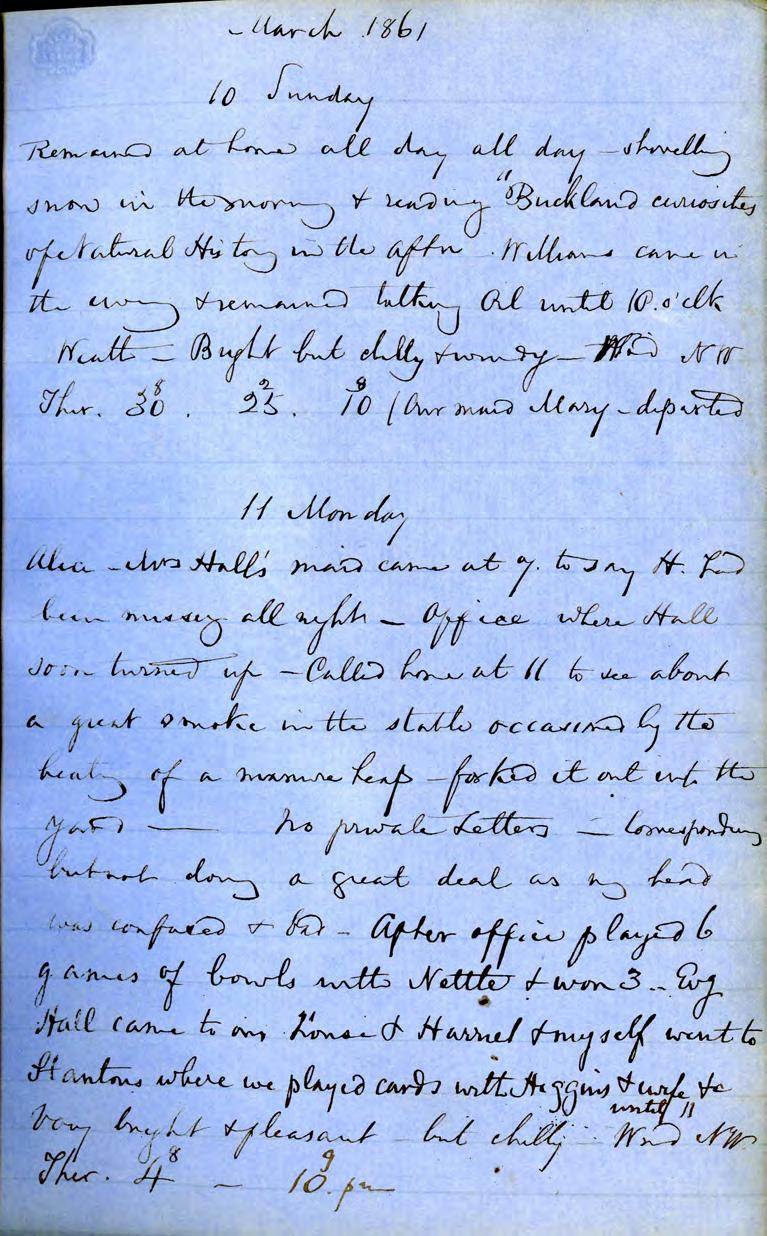 March 1861
10 Sunday
Remained at home all day all day - shovelling
snow in the morng & reading "Buckland curiosites
of Natural History in the aftn. Williams came in
the eveng & remained talking Oil until 10.o'clk
Weath - Bright but chilly & windy - Wind NW
8 2 8
Ther. 30. 25. 10 (Our maid Mary - departed
11 Monday
Alice - Mrs Hall's maid came at 7. to say H. had
been missg all night - Office where Hall
soon turned up - Called home at 11 to see about
a great smoke in the stable occasioned by the
heating of a manure heap - forked it out into the
yard — No private Letters - Corresponding
but not doing a great deal as my head
was confused & bad - After office played 6
games of bowls with Nettle & won 3 - Evg
Hall came to our House & Harriet & myself went to
Stantons where we played cards with Higgins & wife &c
until 11
Very bright & pleasant - but chilly. Wind NW
8 9
Ther. 4 - 10. pm